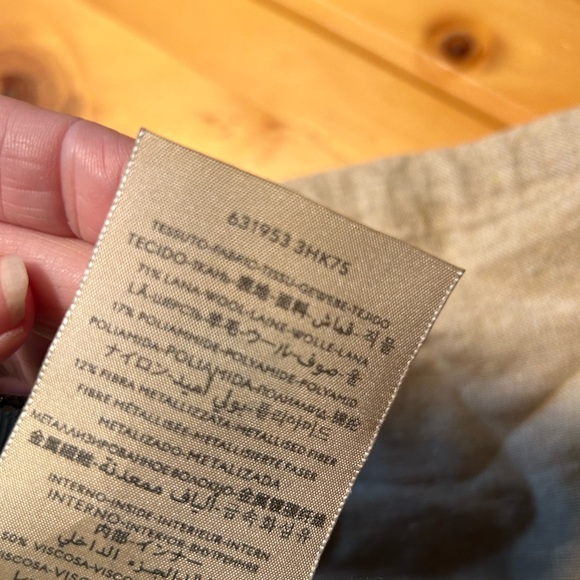 631953 3HK75
TESSUTO-FABRIC-TISSU-GEWEBE-TEJIDO
TECIDO-ТКАНЬ-表地-面料-قماش-직물
71% LANA-WOOL-LAINE-WOLLE-LANA
LÃ-ШЕРСТЬ-羊毛-ウール-صوف-울
17% POLIAMMIDE-POLYAMIDE-POLYAMID
POLIAMIDA-POLIAMIDA-ПОЛИАМИД-锦纶
ナイロン-بولي أميد-폴리아미드
12% FIBRA METALLIZZATA-METALLISED FIBER
FIBRE METALLISÉE-METALLISIERTE FASER
METALIZADO-METALIZADA
МЕТАЛЛИЗИРОВАННОЕ ВОЛОКНО-金属镀膜纤维
金属繊維-ألياف ممعدنة-금속화섬유
INTERNO-INSIDE-INTERIEUR-INTERN
INTERNO-INTERIOR-ВНУТРЕННИЯ
内部-インナー
الجزء الداخلي
50% VISCOSA-VISCO